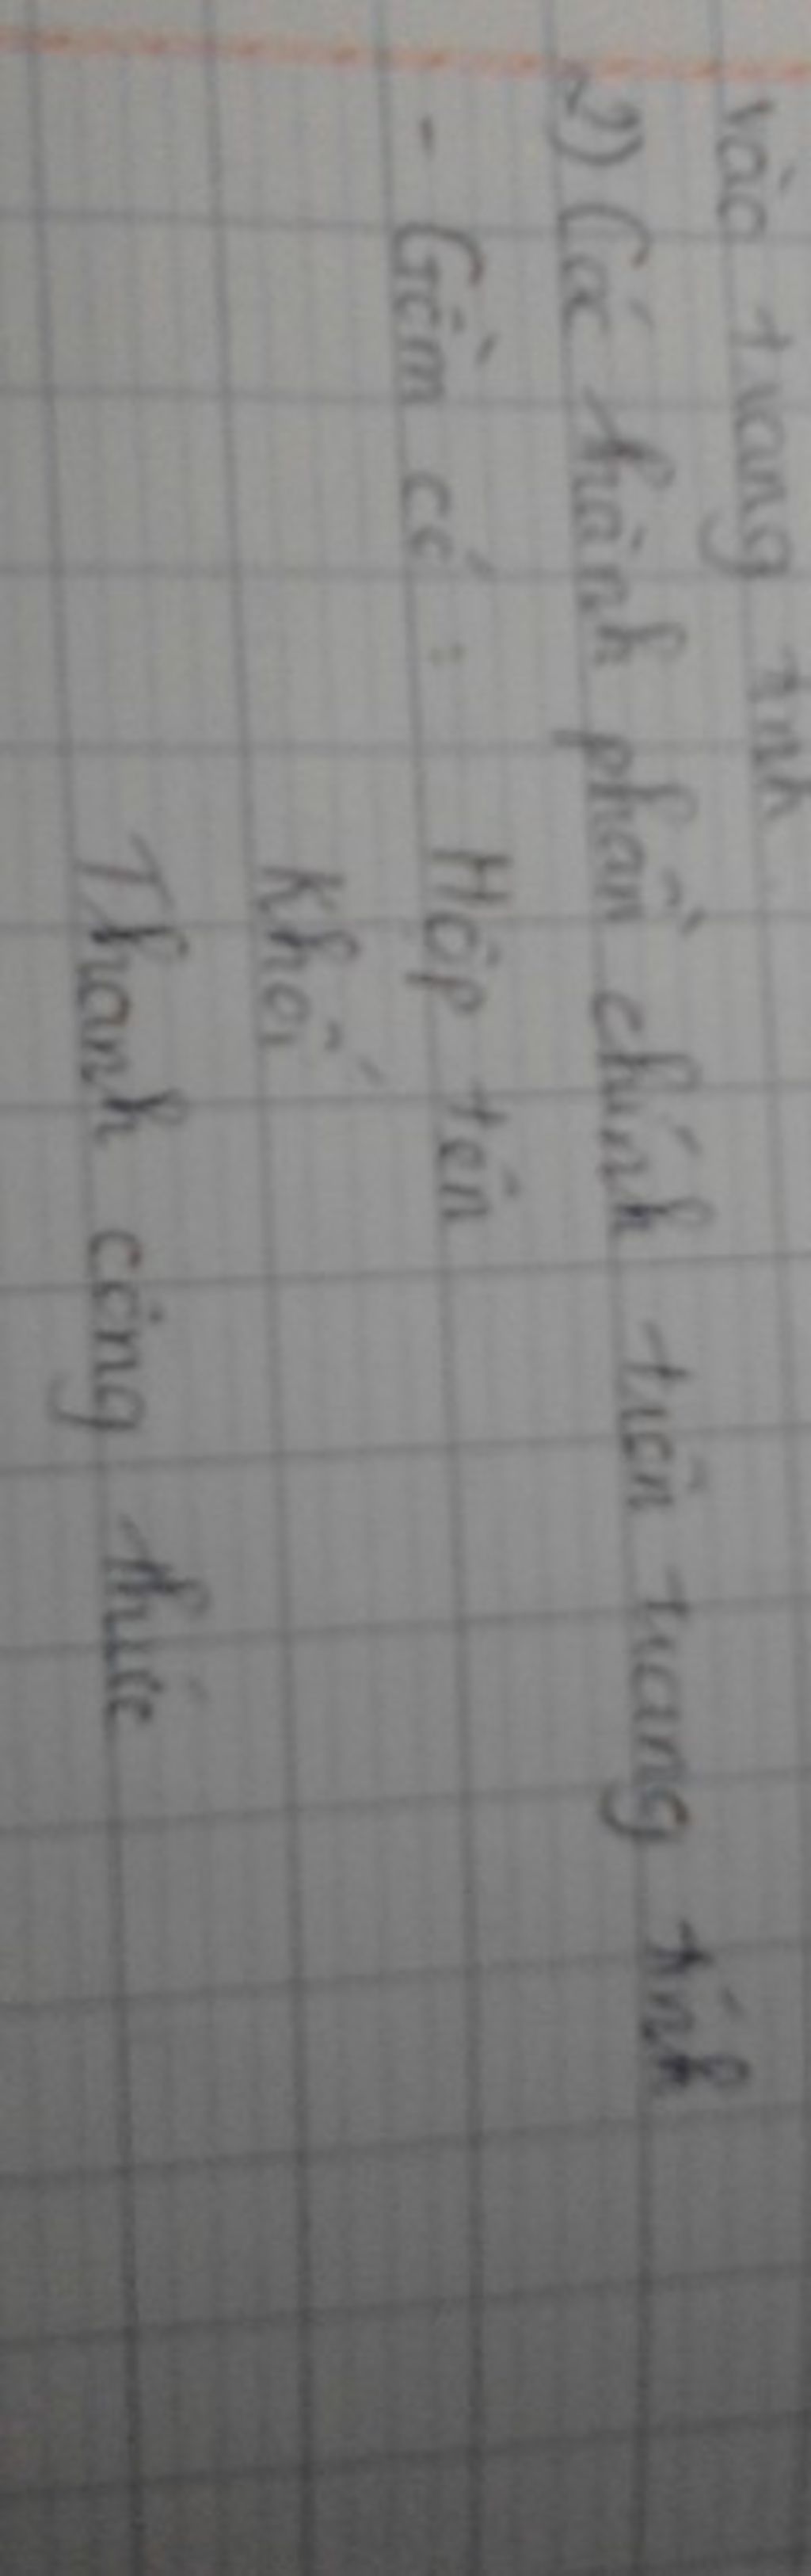 vào trang tính
2) Các thành phần chính trên trang tính
- Gồm có : Hộp tên
Khối
Thanh công thức